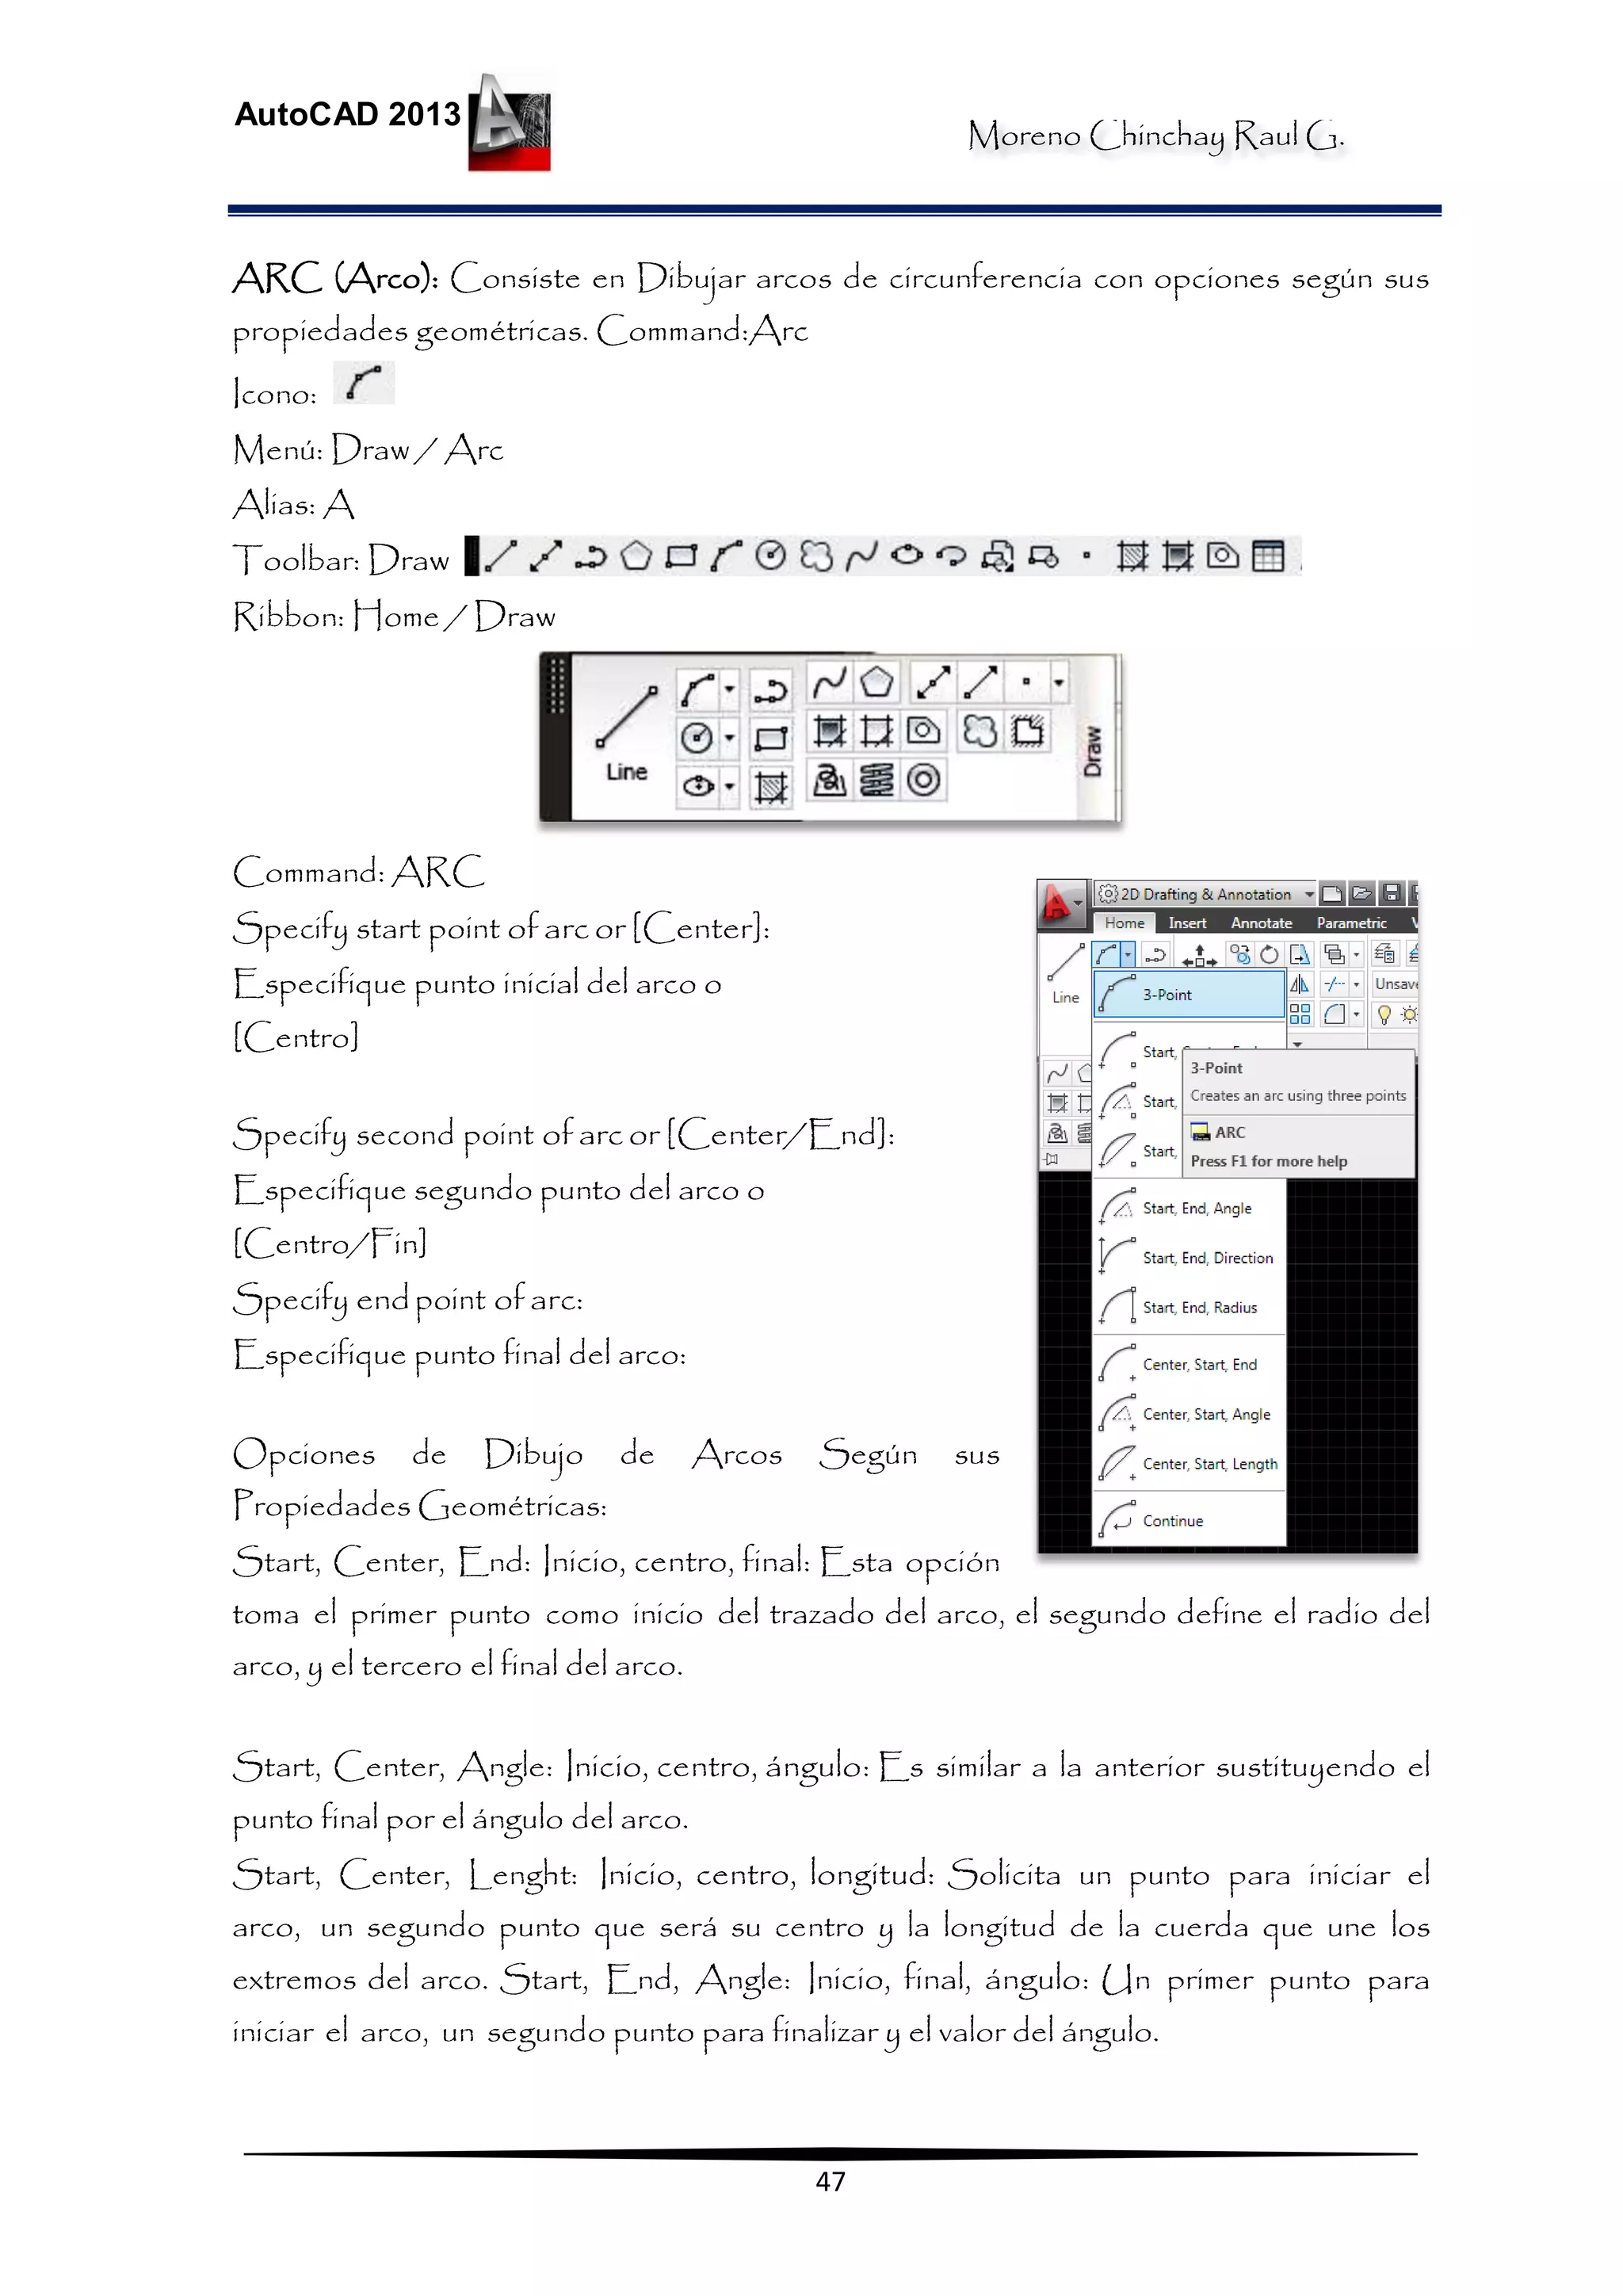 AutoCAD 2013
Moreno Chinchay Raul G.
ARC (Arco): Consiste en Dibujar arcos de circunferencia con opciones según sus
propiedades geométricas. Command:Arc
Icono:
Menú: Draw / Arc
Alias: A
Toolbar: Draw
Ribbon: Home / Draw
Line
Draw
Command: ARC
Specify start point of arc or [Center]:
Especifique punto inicial del arco o
[Centro]
Specify second point of arc or [Center/End]:
Especifique segundo punto del arco o
[Centro/Fin]
Specify end point of arc:
Especifique punto final del arco:
2D Drafting & Annotation
Home Insert Annotate Parametric
Line
Unsav
3-Point
Start,
3-Point
Creates an arc using three points
Start,
ARC
Start,
Press F1 for more help
Start, End, Angle
Start, End, Direction
Start, End, Radius
Center, Start, End
Center, Start, Angle
Center, Start, Length
Continue
Opciones de Dibujo de Arcos Según sus
Propiedades Geométricas:
Start, Center, End: Inicio, centro, final: Esta opción
toma el primer punto como inicio del trazado del arco, el segundo define el radio del
arco, y el tercero el final del arco.
Start, Center, Angle: Inicio, centro, ángulo: Es similar a la anterior sustituyendo el
punto final por el ángulo del arco.
Start, Center, Lenght: Inicio, centro, longitud: Solicita un punto para iniciar el
arco, un segundo punto que será su centro y la longitud de la cuerda que une los
extremos del arco. Start, End, Angle: Inicio, final, ángulo: Un primer punto para
iniciar el arco, un segundo punto para finalizar y el valor del ángulo.
47